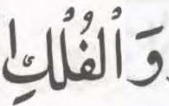 وَالْفُلْكِ ا